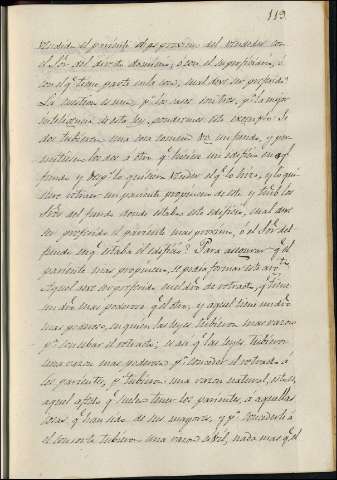 113
vendida el pariente mas proximo del vendedor con
el Sõr. del directo dominio, ó con el superficiario, ó
con el q.e tiene parte en la cosa, cual deve ser preferido?
La cuestion es una, y los casos son tres, y p.a la mejor
inteligencia de esta ley, pondremos este exemplo. Si
dos tubieron una cosa comun &c. un fundo, y per-
mitieron los dos a otro q.e hiciera un edificio en aq.l
fundo y desp.s lo quisiera vender el q.e lo hizo, y lo qui-
siere retraer un pariente propincuo de este, y tambº los
Sres. del fundo donde estaba este edificio, cual deve
ser preferido el pariente mas proximo, ó el Sõr. del
fundo en q.e estaba el edificio? Para asegurar q.e el
pariente mas propincuo, se podia formar este arg.to
Aquel deve ser preferido en el dro. de retracto, q.e tiene
un dro. mas poderoso q.e el otro, y aquel tiene un dro.
mas poderoso, en quien las leyes tubieron mas razon
p.a conceder el retracto; es asi q.e las leyes tubieron
una razon mas poderosa p.a conceder el retracto á
los parientes, p.s tubieron una razon natural, esto es,
aquel afecto q.e suelen tener los parientes, á aquellas
cosas, q.e han sido de sus mayores, y p.a concederlo á
el consorte tubieron una razon civil, nada mas q.e el